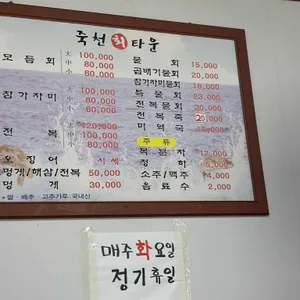 죽천회타운
모듬회 대 100,000
중 80,000
소 60,000
참가자미 대 100,000
중 80,000
소 60,000
전복 120,000
100,000
80,000
오징어 시세
멍게/해삼/전복 50,000
멍게 30,000
물회 15,000
곱배기물회 20,000
참가자미물회 18,000
특물회 23,000
전복물회 30,000
전복죽 20,000
미역국 10,000
주류
복분자 12,000
청하 5,000
소주/맥주 4,000
음료수 2,000
*쌀·배추·고추가루:국내산
매주화요일
정기휴일